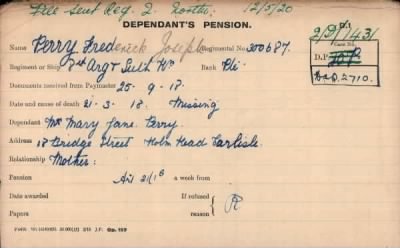 File sent Reg. 2. Notts: 12/5/20
DEPENDANT'S PENSION.
2/D/1431
Name Perry Frederick Joseph Regimental No. 300687.
Case No.
D.P.
Regiment or Ship Argy Suth Hrs Rank Pte
D.2710.
Documents received from Paymaster 25-9-18.
Date and cause of death 21-3-18. Missing
Dependant Mrs Mary Jane Perry
Address 18 Bridge Street Holm Head Carlisle
Relationship Mother:
Pension a week from
Date awarded If refused } R
Papers reason